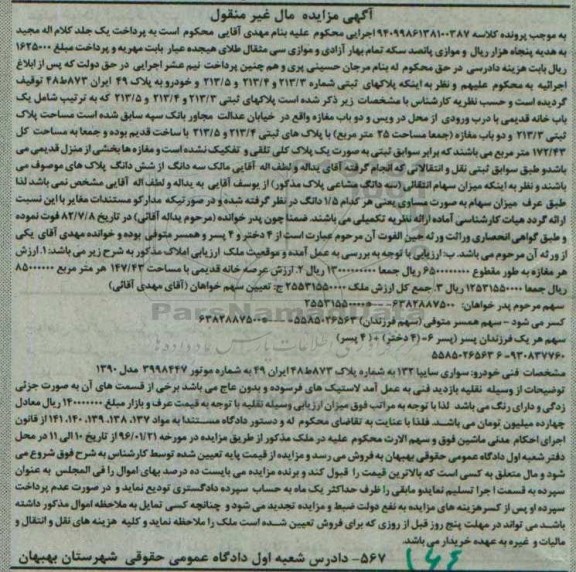 آگهی مزایده مال غیر منقول
به موجب پرونده کلاسه ۹۴۰۹۹۸۶۱۳۸۱۰۰۳۸۷ اجرایی محکوم علیه بنام مهدی آقایی محکوم است به پرداخت یک جلد کلام اله مجید
به هدیه پنجاه هزار ریال و موازی پانصد سکه تمام بهار آزادی و موازی سی مثقال طلای هیجده عیار بابت مهریه و پرداخت مبلغ ۱۶۲۵۰۰۰
ریال بابت هزینه دادرسی در حق محکوم له بنام مرجان حسینی پری و هم چنین پرداخت نیم عشر اجرایی در حق دولت که پس از ابلاغ
اجرائیه به محکوم علیهم و نظر به اینکه پلاکهای ثبتی شماره ۲۱۳/۳ و ۲۱۳/۴ و ۲۱۳/۵ و خودرو به پلاک ۴۹ ایران ۸۷۳ط۴۸ توقیف
گردیده است و حسب نظریه کارشناس با مشخصات زیر ذکر شده است پلاکهای ثبتی ۲۱۳/۳ و ۲۱۳/۴ و ۲۱۳/۵ که به ترتیب شامل یک
باب خانه قدیمی با درب ورودی از محل در ویس و دو باب مغازه واقع در خیابان عدالت مجاور بانک سپه سابق شده است مساحت پلاک
ثبتی ۲۱۳/۳ و دو باب مغازه (جمعا مساحت ۲۵ متر مربع) با پلاک های ثبتی ۲۱۳/۴ و ۲۱۳/۵ با ساخت قدیم بوده و جمعا به مساحت کل
۱۷۲/۴۳ متر مربع می باشند که برابر سوابق ثبتی به صورت یک پلاک کلی تلقی و تفکیک نشده است و مغازه ها بخشی از منزل قدیمی می
باشدو طبق سوابق ثبتی نقل و انتقالاتی که انجام گرفته آقای یداله و لطف اله آقایی مالک سه دانگ از شش دانگ پلاک های موصوف می
باشند و نظر به اینکه میزان سهام انتقالی (سه دانگ مشاعی پلاک مذکور) از یوسف آقایی به یداله و لطف اله آقایی مشخص نمی باشد لذا
طبق عرف میزان سهام به صورت مساوی یعنی هر کدام ۱/۵ دانگ در نظر گرفته شده و در صورتیکه مدارکو مستندات مغایر با این نسبت
ارائه گردد هیات کارشناسی آماده ارائه نظریه تکمیلی می باشند. ضمنا چون پدر خوانده (مرحوم یداله آقائی) در تاریخ ۸۲/۷/۸ فوت نموده
و طبق گواهی انحصاری وراثت ورثه حین الفوت آن مرحوم عبارت است از ۴ دختر و ۴ پسر و همسر متوفی بوده و خوانده مهدی آقای یکی
از ورثه آن مرحوم می باشد. ب: ارزیابی با توجه به بررسی به عمل آمده و موقعیت ملک ارزیابی املاک مذکور به شرح زیر می باشد: ۱. ارزش
هر مغازه به طور مقطوع ۶۵۰۰۰۰۰۰۰ ریال جمعا ۱۳۰۰۰۰۰۰۰۰ ریال ۲. ارزش عرصه خانه قدیمی با مساحت ۱۴۷/۴۳ هر متر مربع ۸۵۰۰۰۰۰
ریال جمعا ۱۲۵۳۱۵۵۰۰۰ ریال ۳. جمع کل ارزش ملک ۲۵۵۳۱۵۵۰۰۰ ج: تعیین سهم خواهان (آقای مهدی آقائی)
سهم مرحوم پدر خواهان: ۶۳۸۲۸۸۷۵۰۰
کسر می شود – سهم همسر متوفی (سهم فرزندان) ۵۵۸۵۰۲۶۵۶۳
سهم هر یک فرزندان پسر (پسر ۶۰ (۴ دختر) (۴ پسر)
مشخصات فنی خودرو: سواری سایپا ۱۳۲ به شماره پلاک ۸۷۳ط۴۸ ایران ۴۹ به شماره موتور ۳۹۹۸۴۴۷ مدل ۱۳۹۰
توضیحات از وسیله نقلیه بازدید فنی به عمل آمد لاستیک های فرسوده و بدون عاج می باشد برخی از قسمت های آن به صورت جزئی
زدگی و دارای رنگ می باشد لذا با توجه به مراتب فوق میزان ارزیابی وسیله نقلیه با توجه به قیمت عرف و بازار مبلغ ۱۴۰۰۰۰۰۰۰ ریال معادل
چهارده میلیون تومان می باشد. فلذا با عنایت به تقاضای محکوم له و دستور دادگاه مستندا به مواد ۱۳۷، ۱۳۸، ۱۳۹، ۱۴۰، ۱۴۱ از قانون
اجرای احکام مدنی ماشین فوق و سهم الارث محکوم علیه در ملک مذکور از طریق مزایده در مورخه ۹۶/۰۱/۲۱ از تاریخ ۱۰ الی ۱۱ در محل
دفتر شعبه اول دادگاه عمومی حقوقی بهبهان به فروش می رسد و مزایده از قیمت پایه تعیین شده توسط کارشناس به شرح فوق شروع می
شود و مال متعلق به کسی است که بالاترین قیمت را قبول کند و برنده مزایده می بایست ده درصد بهای اموال را فی المجلس به عنوان
سپرده به قسمت اجرا تسلیم نمایدو مابقی را ظرف حداکثر یک ماه به حساب سپرده دادگستری تودیع نماید و در صورت عدم پرداخت
سپرده او پس از کسرهزینه های مزایده به نفع دولت ضبط و مزایده تجدید می شود و چنانچه کسی تمایل به ملاحظه اموال مذکور داشته
باشد می تواند در مهلت پنج روز قبل از روزی که برای فروش تعیین شده است ملک را ملاحظه نماید و کلیه هزینه های نقل و انتقال و
مالیات و غیره به عهده خریدار می باشد.
۵۶۷- دادرس شعبه اول دادگاه عمومی حقوقی شهرستان بهبهان